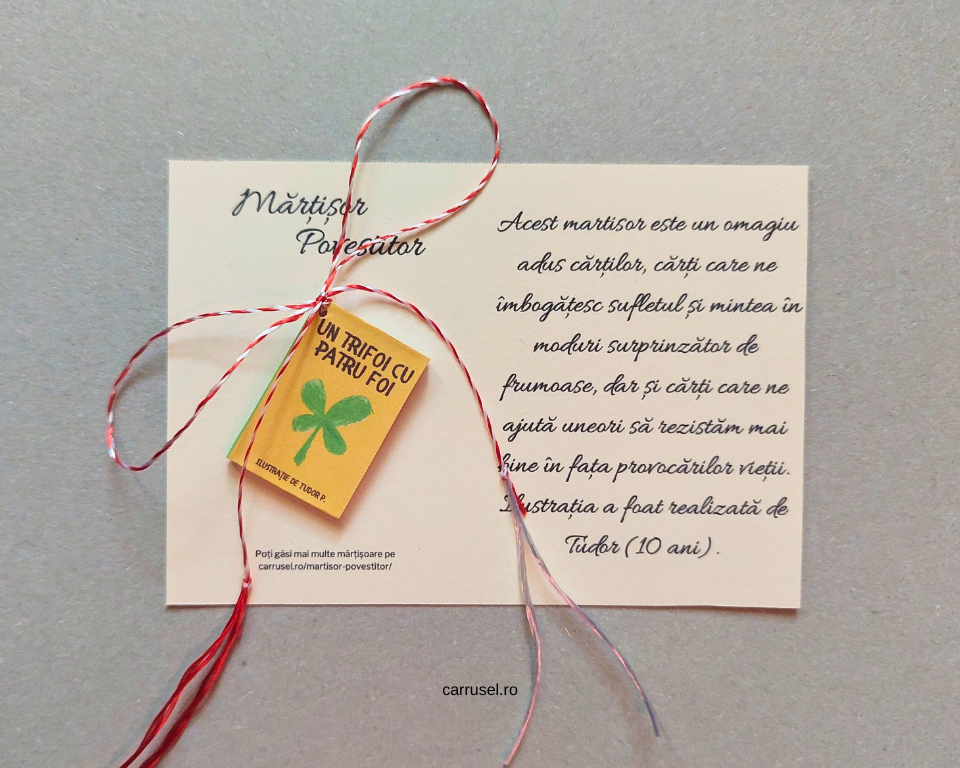 Mărțișor
Povestitor
UN TRIFOI CU
PATRU FOI
ILUSTRAȚIE DE TUDOR P.
Poți găsi mai multe mărțișoare pe
carrusel.ro/martisor-povestitor/
Acest martisor este un omagiu
adus cărților, cărți care ne
îmbogățesc sufletul și mintea în
moduri surprinzător de
frumoase, dar și cărți care ne
ajută uneori să rezistăm mai
bine în fața provocărilor vieții.
Ilustrația a foat realizată de
Tudor (10 ani).
carrusel.ro